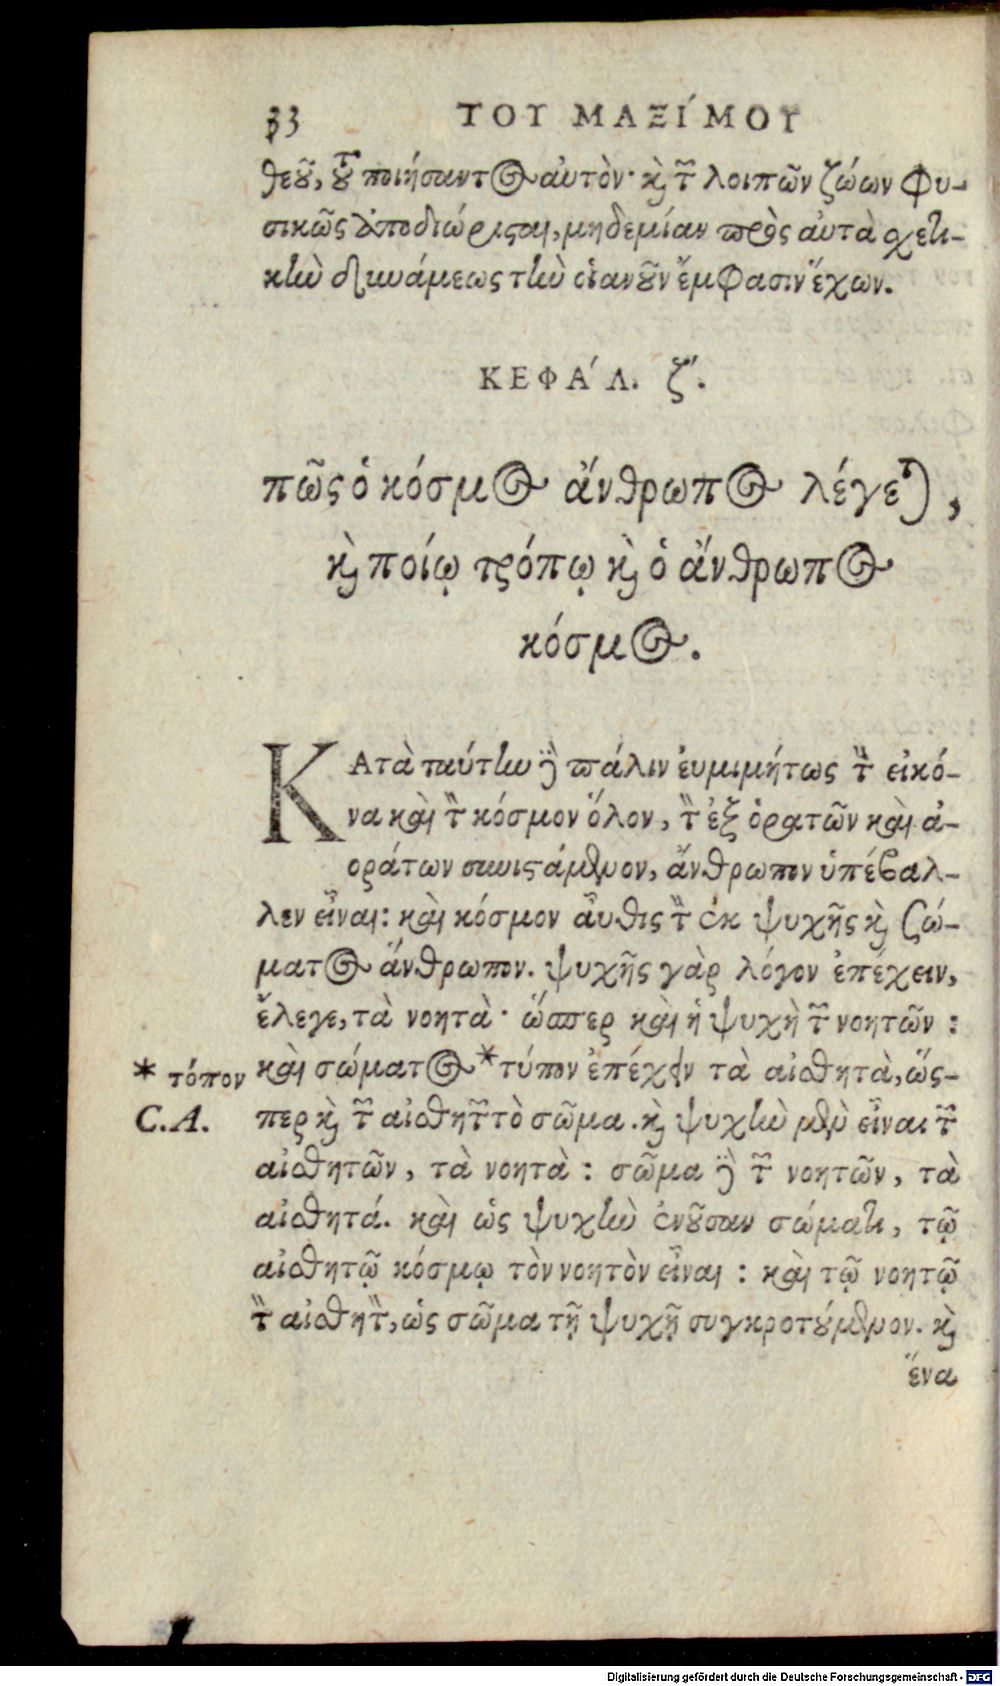 33 ΤΟΥ ΜΑΞΊΜΟΥ
θεοῦ, τοῦ ποιήσαντος αὐτὸν· καὶ τῶν λοιπῶν ζώων φυ-
σικῶς ἀποδιώρισται, μηδεμίαν πρὸς αὐτὰ σχετι-
κὴν δυνάμεως τὴν οἱανοῦν ἔμφασιν ἔχων.
ΚΕΦΆΛ. ζ΄.
πῶς ὁ κόσμος ἄνθρωπος λέγεται,
καὶ ποίῳ τρόπῳ καὶ ὁ ἄνθρωπος
κόσμος.
ΚΑτὰ ταύτην δὲ πάλιν ἐυμιμήτως τὴν εἰκό-
να καὶ τὸν κόσμον ὅλον, τὸν ἐξ ὁρατῶν καὶ ἀ-
οράτων συνιστάμενον, ἄνθρωπον ὑπέβαλ-
λεν εἶναι: καὶ κόσμον αὖθις τὸν ἐκ ψυχῆς καὶ σώ-
ματος ἄνθρωπον. ψυχῆς γὰρ λόγον ἐπέχειν,
ἔλεγε, τὰ νοητὰ· ὥσπερ καὶ ἡ ψυχὴ τῶν νοητῶν:
καὶ σώματος *τύπον ἐπέχειν τὰ αἰσθητὰ, ὥς-
* τόπον
C.A.
περ καὶ τῶν αἰσθητῶν τὸ σῶμα. καὶ ψυχὴν μὲν εἶναι τῶν
αἰσθητῶν, τὰ νοητὰ: σῶμα δὲ τῶν νοητῶν, τὰ
αἰσθητά. καὶ ὡς ψυχὴν ἐνοῦσαν σώματι, τῷ
αἰσθητῷ κόσμῳ τὸν νοητὸν εἶναι: καὶ τῷ νοητῷ
τὸν αἰσθητὸν, ὡς σῶμα τῇ ψυχῇ συγκροτούμενον. καὶ
ἕνα
Digitalisierung gefördert durch die Deutsche Forschungsgemeinschaft - DFG